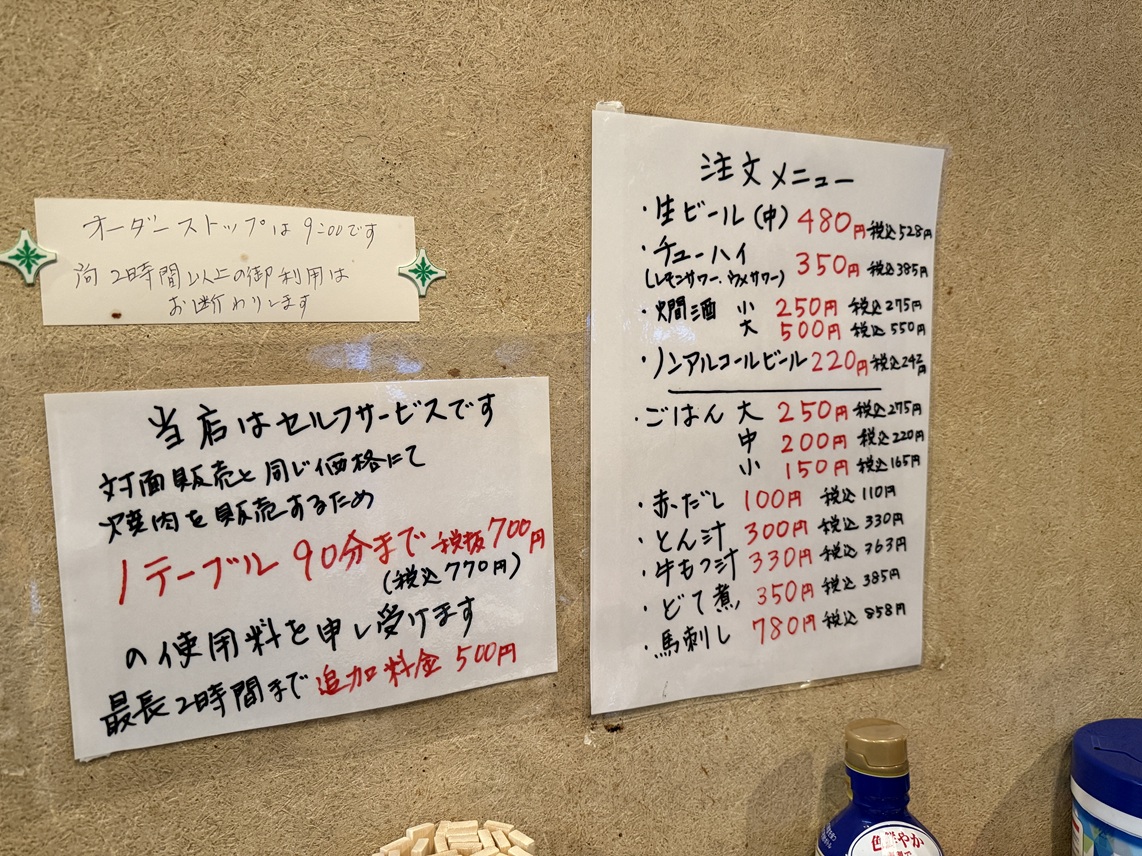 オーダーストップは9:00です
尚2時間以上の御利用は
お断わりします
当店はセルフサービスです
対面販売と同じ価格にて
焼肉を販売するため
1テーブル 90分まで 税抜700円
(税込770円)
の使用料を申し受けます
最長2時間まで 追加料金 500円
注文メニュー
・生ビール(中) 480円 税込528円
・チューハイ 350円 税込385円
(レモンサワー、ウメサワー)
・燗酒 小 250円 税込275円
大 500円 税込550円
・ノンアルコールビール 220円 税込242円
・ごはん 大 250円 税込275円
中 200円 税込220円
小 150円 税込165円
・赤だし 100円 税込110円
・とん汁 300円 税込330円
・牛もつ汁 330円 税込363円
・どて煮 350円 税込385円
・馬刺し 780円 税込858円
色鮮やか